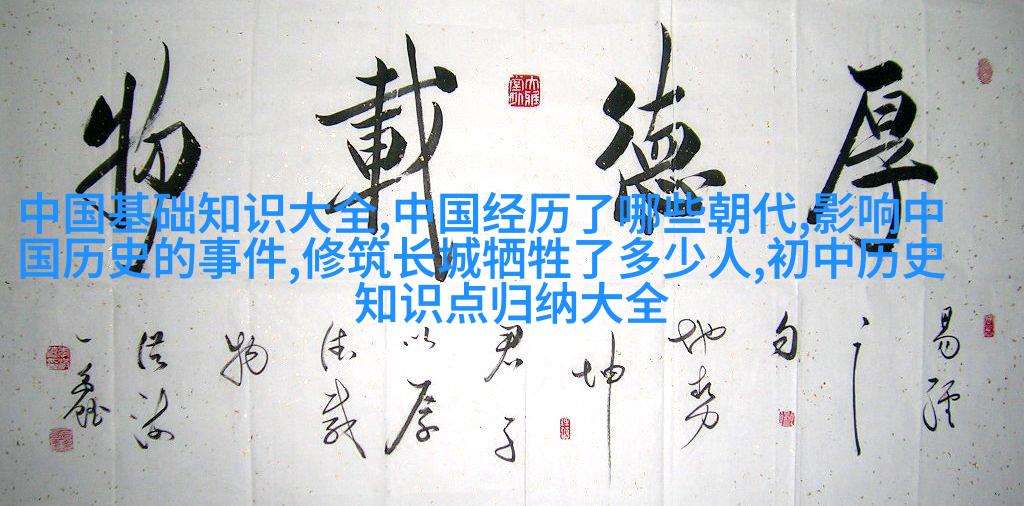 厚德載物
中国基础知识大全,中国经历了哪些朝代,影响中
国历史的事件,修筑长城牺牲了多少人,初中历史
知识点归纳大全
易經
之
句
地势
坤
君子
以厚
德载
物